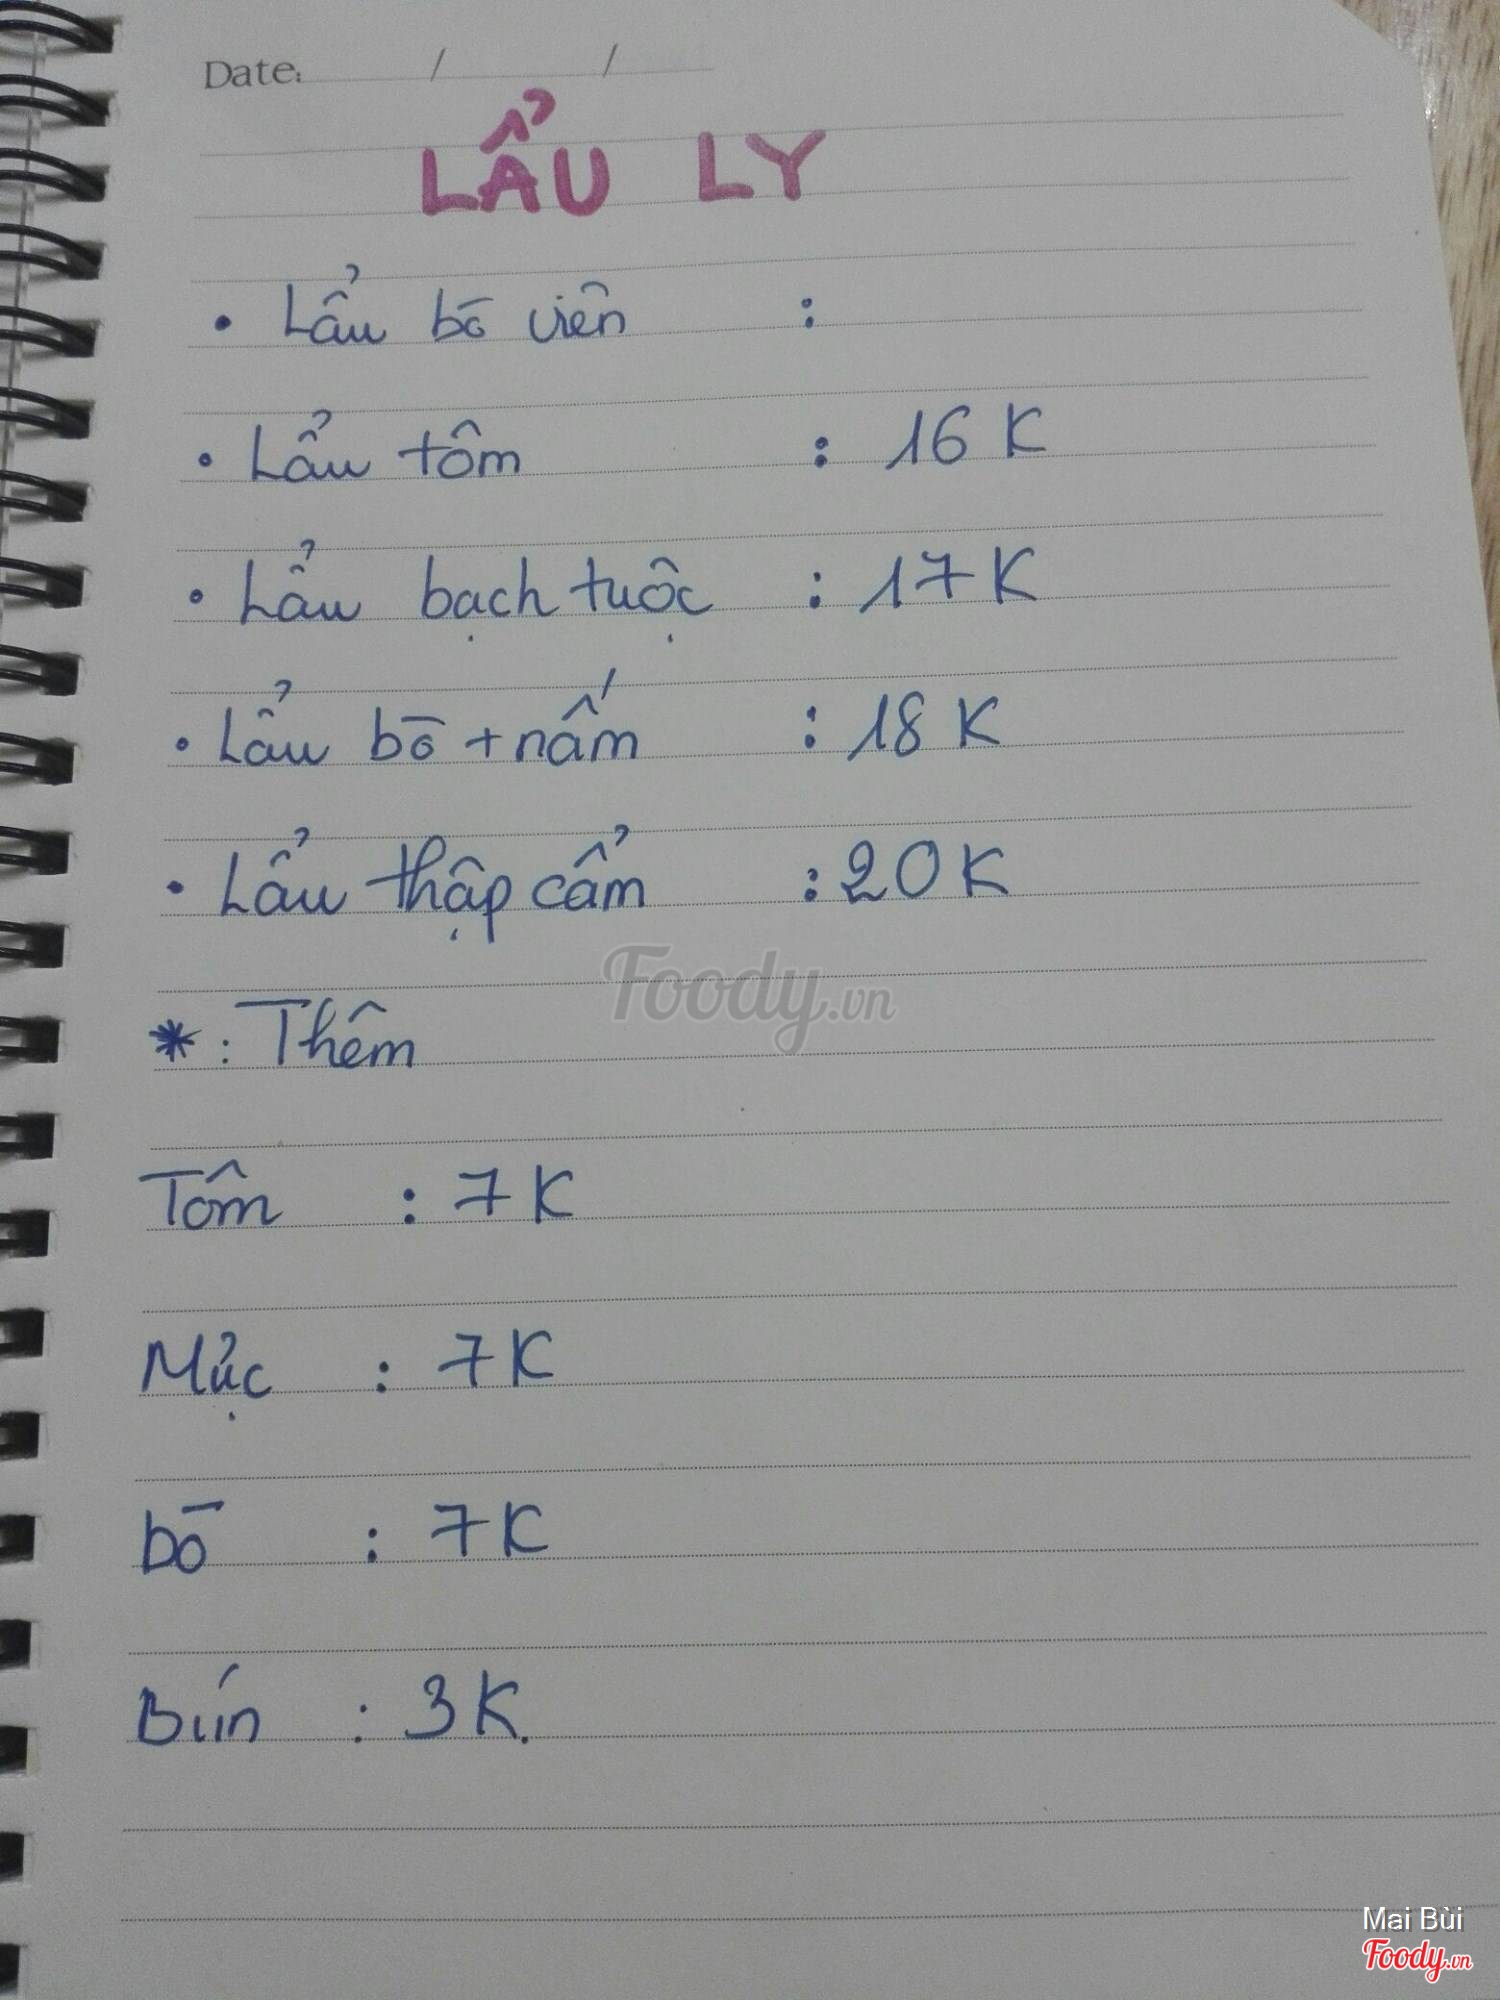 Date: / /
LẨU LY
• Lẩu bò viên :
• Lẩu tôm : 16 K
• Lẩu bạch tuộc : 17 K
• Lẩu bò + nấm : 18 K
• Lẩu thập cẩm : 20 K
Foody.vn
* : Thêm
Tôm : 7 K
Mực : 7 K
bò : 7 K
Bún : 3 K.
Mai Bùi
Foody.vn